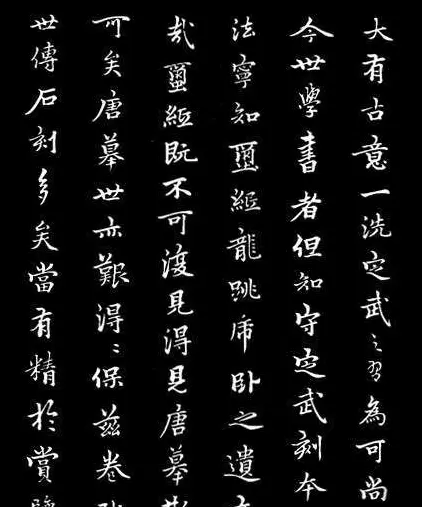 大有古意一洗定武之習為可尚
今世學書者但知守定武刻本
法寧知蠒紙龍跳虎臥之遺
哉蠒紙既不可復見得見唐摹
可矣唐摹世亦艱得〻保茲卷
世傳石刻多矣當有精於賞